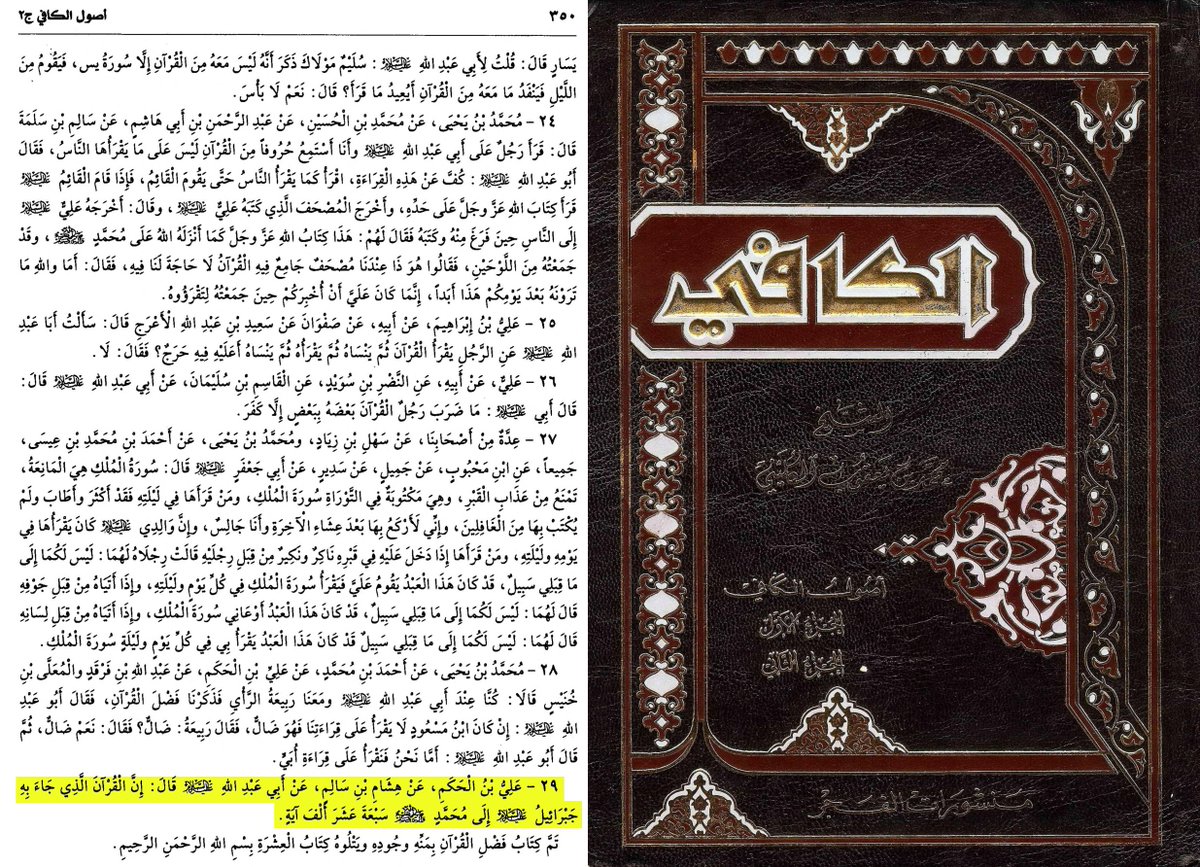 ٣٥٠ أصول الكافي ج٢
يَسَارٍ قَالَ: قُلْتُ لِأَبِي عَبْدِ اللهِ عليه السلام: سُلَيْمٌ مَوْلَاكَ ذَكَرَ أَنَّهُ لَيْسَ مَعَهُ مِنَ الْقُرْآنِ إِلَّا سُورَةُ يس، فَيَقُومُ مِنَ
اللَّيْلِ فَيَنْفَدُ مَا مَعَهُ مِنَ الْقُرْآنِ أَيُعِيدُ مَا قَرَأَ؟ قَالَ: نَعَمْ لَا بَأْسَ.
٢٤ - مُحَمَّدُ بْنُ يَحْيَى، عَنْ مُحَمَّدِ بْنِ الْحُسَيْنِ، عَنْ عَبْدِ الرَّحْمَنِ بْنِ أَبِي هَاشِمٍ، عَنْ سَالِمِ بْنِ سَلَمَةَ
قَالَ: قَرَأَ رَجُلٌ عَلَى أَبِي عَبْدِ اللهِ عليه السلام وأَنَا أَسْتَمِعُ حُرُوفاً مِنَ الْقُرْآنِ لَيْسَ عَلَى مَا يَقْرَأُهَا النَّاسُ، فَقَالَ
أَبُو عَبْدِ اللهِ عليه السلام: كُفَّ عَنْ هَذِهِ الْقِرَاءَةِ، اقْرَأْ كَمَا يَقْرَأُ النَّاسُ حَتَّى يَقُومَ الْقَائِمُ، فَإِذَا قَامَ الْقَائِمُ عليه السلام
قَرَأَ كِتَابَ اللهِ عَزَّ وَجَلَّ عَلَى حَدِّهِ، وأَخْرَجَ الْمُصْحَفَ الَّذِي كَتَبَهُ عَلِيٌّ عليه السلام، وقَالَ: أَخْرَجَهُ عَلِيٌّ عليه السلام
إِلَى النَّاسِ حِينَ فَرَغَ مِنْهُ وكَتَبَهُ فَقَالَ لَهُمْ: هَذَا كِتَابُ اللهِ عَزَّ وَجَلَّ كَمَا أَنْزَلَهُ اللهُ عَلَى مُحَمَّدٍ ﷺ، وقَدْ
جَمَعْتُهُ مِنَ اللَّوْحَيْنِ، فَقَالُوا هُوَ ذَا عِنْدَنَا مُصْحَفٌ جَامِعٌ فِيهِ الْقُرْآنُ لَا حَاجَةَ لَنَا فِيهِ، فَقَالَ: أَمَا واللهِ مَا
تَرَوْنَهُ بَعْدَ يَوْمِكُمْ هَذَا أَبَداً، إِنَّمَا كَانَ عَلَيَّ أَنْ أُخْبِرَكُمْ حِينَ جَمَعْتُهُ لِتَقْرَؤُوهُ.
٢٥ - عَلِيُّ بْنُ إِبْرَاهِيمَ، عَنْ أَبِيهِ، عَنْ صَفْوَانَ عَنْ سَعِيدِ بْنِ عَبْدِ اللهِ الْأَعْرَجِ قَالَ: سَأَلْتُ أَبَا عَبْدِ
اللهِ عليه السلام عَنِ الرَّجُلِ يَقْرَأُ الْقُرْآنَ ثُمَّ يَنْسَاهُ ثُمَّ يَقْرَأُهُ ثُمَّ يَنْسَاهُ أَعَلَيْهِ فِيهِ حَرَجٌ؟ فَقَالَ: لَا.
٢٦ - عَلِيٌّ، عَنْ أَبِيهِ، عَنِ النَّضْرِ بْنِ سُوَيْدٍ، عَنِ الْقَاسِمِ بْنِ سُلَيْمَانَ، عَنْ أَبِي عَبْدِ اللهِ عليه السلام قَالَ:
قَالَ أَبِي عليه السلام: مَا ضَرَبَ رَجُلٌ الْقُرْآنَ بَعْضَهُ بِبَعْضٍ إِلَّا كَفَرَ.
٢٧ - عِدَّةٌ مِنْ أَصْحَابِنَا، عَنْ سَهْلِ بْنِ زِيَادٍ، ومُحَمَّدُ بْنُ يَحْيَى، عَنْ أَحْمَدَ بْنِ مُحَمَّدِ بْنِ عِيسَى،
جَمِيعاً، عَنِ ابْنِ مَحْبُوبٍ، عَنْ جَمِيلٍ، عَنْ سَدِيرٍ، عَنْ أَبِي جَعْفَرٍ عليه السلام قَالَ: سُورَةُ الْمُلْكِ هِيَ الْمَانِعَةُ،
تَمْنَعُ مِنْ عَذَابِ الْقَبْرِ، وهِيَ مَكْتُوبَةٌ فِي التَّوْرَاةِ سُورَةَ الْمُلْكِ، ومَنْ قَرَأَهَا فِي لَيْلَتِهِ فَقَدْ أَكْثَرَ وأَطَابَ ولَمْ
يُكْتَبْ بِهَا مِنَ الْغَافِلِينَ، وإِنِّي لَأَرْكَعُ بِهَا بَعْدَ عِشَاءِ الْآخِرَةِ وأَنَا جَالِسٌ، وإِنَّ وَالِدِي عليه السلام كَانَ يَقْرَأُهَا فِي
يَوْمِهِ ولَيْلَتِهِ، ومَنْ قَرَأَهَا إِذَا دَخَلَ عَلَيْهِ فِي قَبْرِهِ نَاكِرٌ ونَكِيرٌ مِنْ قِبَلِ رِجْلَيْهِ قَالَتْ رِجْلَاهُ لَهُمَا: لَيْسَ لَكُمَا إِلَى
مَا قِبَلِي سَبِيلٌ، قَدْ كَانَ هَذَا الْعَبْدُ يَقُومُ عَلَيَّ فَيَقْرَأُ سُورَةَ الْمُلْكِ فِي كُلِّ يَوْمٍ ولَيْلَتِهِ، وإِذَا أَتَيَاهُ مِنْ قِبَلِ جَوْفِهِ
قَالَ لَهُمَا: لَيْسَ لَكُمَا إِلَى مَا قِبَلِي سَبِيلٌ، قَدْ كَانَ هَذَا الْعَبْدُ أَوْعَانِي سُورَةَ الْمُلْكِ، وإِذَا أَتَيَاهُ مِنْ قِبَلِ لِسَانِهِ
قَالَ لَهُمَا: لَيْسَ لَكُمَا إِلَى مَا قِبَلِي سَبِيلٌ قَدْ كَانَ هَذَا الْعَبْدُ يَقْرَأُ بِي فِي كُلِّ يَوْمٍ ولَيْلَةٍ سُورَةَ الْمُلْكِ.
٢٨ - مُحَمَّدُ بْنُ يَحْيَى، عَنْ أَحْمَدَ بْنِ مُحَمَّدٍ، عَنْ عَلِيِّ بْنِ الْحَكَمِ، عَنْ عَبْدِ اللهِ بْنِ فَرْقَدٍ والْمُعَلَّى بْنِ
خُنَيْسٍ قَالَا: كُنَّا عِنْدَ أَبِي عَبْدِ اللهِ عليه السلام ومَعَنَا رَبِيعَةُ الرَّأْيِ فَذَكَرْنَا فَضْلَ الْقُرْآنِ، فَقَالَ أَبُو عَبْدِ
اللهِ عليه السلام: إِنْ كَانَ ابْنُ مَسْعُودٍ لَا يَقْرَأُ عَلَى قِرَاءَتِنَا فَهُوَ ضَالٌّ، فَقَالَ رَبِيعَةُ: ضَالٌّ؟ فَقَالَ: نَعَمْ ضَالٌّ، ثُمَّ
قَالَ أَبُو عَبْدِ اللهِ عليه السلام: أَمَّا نَحْنُ فَنَقْرَأُ عَلَى قِرَاءَةِ أُبَيٍّ.
٢٩ - عَلِيُّ بْنُ الْحَكَمِ، عَنْ هِشَامِ بْنِ سَالِمٍ، عَنْ أَبِي عَبْدِ اللهِ عليه السلام قَالَ: إِنَّ الْقُرْآنَ الَّذِي جَاءَ بِهِ
جَبْرَائِيلُ عليه السلام إِلَى مُحَمَّدٍ ﷺ سَبْعَةَ عَشَرَ أَلْفَ آيَةٍ.
تَمَّ كِتَابُ فَضْلِ الْقُرْآنِ بِمَنِّهِ وجُودِهِ ويَتْلُوهُ كِتَابُ الْعِشْرَةِ بِسْمِ اللهِ الرَّحْمَنِ الرَّحِيمِ.
الكافي
الشيخ
محمد بن يعقوب الكليني
أصول الكافي
الجزء الأول
الجزء الثاني
منشورات الفجر